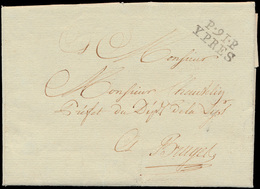 P.91.P.
YPRES
A Monsieur
Monsieur
Préfet du Dépt de la Lys
A Bruges